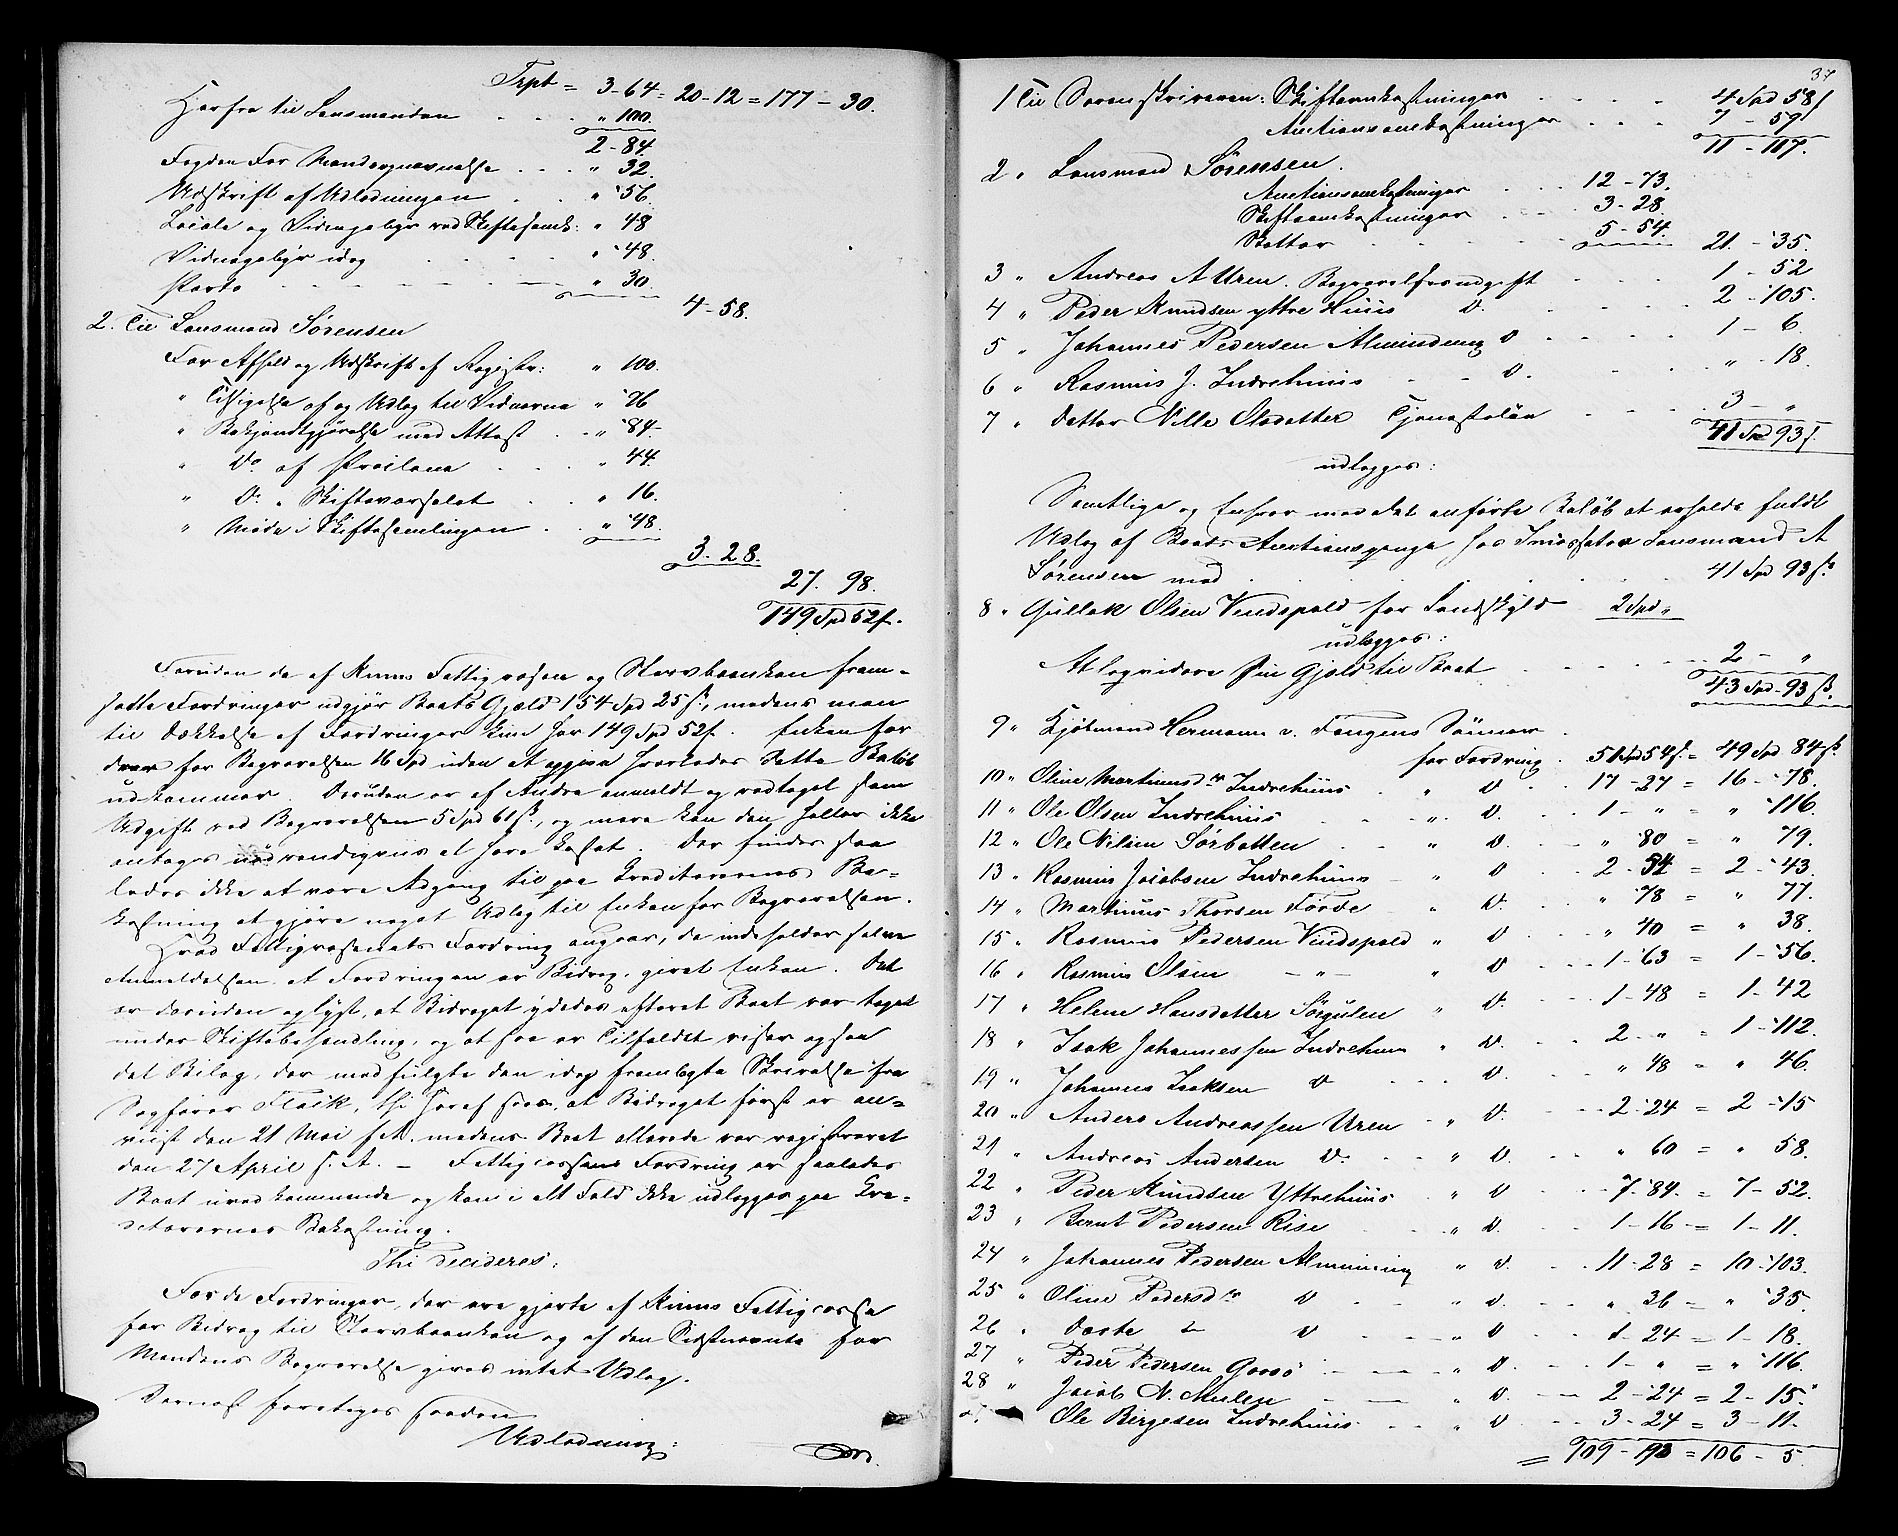 Trpt = 3-64 = 20-12 = 177-30.
Herfra til Lensmanden . . . " 100.
2-84.
Fogden for Mandopnævnelse . . . " 32.
Udskrift af Udlodningen . . " 56.
Locale og Vidnegebyr ved Skiftesaml: " 48
Vidnegebyr idag . . . . " 48.
Porto - - - - - " 30.
4-58.
2. Til Lensmand Sørensen
For Afhold og Udskrift af Registr: " 100.
" Tilsigelse af og Udlæg til Vidnerne " 76
" Bekjendtgjørelse med Attest . . " 84.
" Do af Proclama . . . " 44.
" Do " Skiftevarselet . . " 16.
" Møde i Skiftesamlingen . . " 48.
3. 28.
27. 98.
149 Spd 52 s.
Foruden de af Kinns Fattigvæsen og Stervboenken frem-
satte Fordringer udgjør Boets Gjæld 154 Spd 25 s, medens man
til Dækkelse af Fordringer kun har 149 Spd 52 s. Enken for
drer for Begravelsen 16 Spd uden at opgive hvorledes dette Beløb
udkommer. Desuden er af Andre anmeldt og vedtaget som
Udgift ved Begravelsen 5 Spd 61 s, og mere kan den heller ikke
antages nødvendigviis at have kostet. Der findes saa
ledes ikke at være Adgang til paa Creditorernes Be-
kostning at gjøre noget Udlæg til Enken for Begravelsen.
Hvad Fattigvæsenets Fordring angaar, da indeholder selve
Anmeldelsen at Fordringen er Bidrag, givet Enken. Det
er desuden oplyst, at Bidraget ydedes efteret Boet var taget
under Skiftebehandling, og at saa er Tilfældet viser ogsaa
det Bilag, der medfulgte den idag fremlagte Skrivelse fra
Sagfører Flaik, thi heraf sees, at Bidraget først er an-
viist den 21 Mai f. A. medens Boet allerede var registreret
den 27 April f. A. - Fattigcassens Fordring er saaledes
Boet uvedkommende og kan i alt Fald ikke udlægges paa Cre-
ditorernes Bekostning.
Thi decideres:
For de Fordringer, der ere gjorte af Kinns Fattigcasse
for Bidrag til Stervboenken og af den Sidstnævnte for
Mandens Begravelse gives intet Udlæg.
Dernæst foretages saadan
Udlodning:
37
1 Til Sorenskriveren: Skifteomkostninger . . . . 4 Spd 58 s
Auctionsomkostninger . . . 7 - 59
11 - 117.
2 " Lensmand Sørensen.
Auctionsomkostninger . . . 12 - 73.
Skifteomkostninger . . . 3 - 28
Skatter . . . . . 5 - 54. 21 - 35.
3 " Andreas A Uren. Begravelsesudgift . . . . 1 - 52
4 " Peder Knudsen yttre Huus Do . . . . 2 - 105.
5 " Johannes Pedersen Alminding Do . . . . 1 - 6.
6 " Rasmus J. Indrehuus - - Do . . . " - 18.
7 " Datter Nille Olsdatter Tjenesteløn . . . . 3 - "
41 Spd 93 s.
udlægges:
Samtlige og Enhver med det anførte Beløb at erholde fuldt
Udlæg af Boets Auctionspenge hos Incassator Lensmand A
Sørensen med . . . . . 41 Spd 93 s.
8 " Gullak Olsen Vindspold for Landskyld 2 Spd "
udlægges:
At liqvidere sin Gjæld til Boet . . . . . 2 - "
43 Spd - 93 s.
9 " Kjøbmand Hermann v. Tangens Sønner .
for Fordring . 51 Spd 54 s. = 49 Spd 84 s.
10 " Oline Martinusdr Indrehuus . " Do . . 17 - 27 = 16 - 78.
11 " Ole Olsen Indrehuus . . . " Do . . 1 - " = " - 116.
12 " Ole Nilsen Sørbotten . . " Do . . " 80 = " 79.
13 " Rasmus Jacobsen Indrehuus - " Do . . 2 - 54 = 2 - 43.
14 " Martinus Thorsen Førde - " Do . . " 78 = " 77.
15 " Rasmus Pedersen Vindspold " Do . . " 40 = " 38.
16 " Rasmus Olsen - " - " Do . . 1 - 63 = 1 - 56.
17 " Helene Hansdatter Sørgulen " Do . . 1 - 48 = 1 - 42
18 " Isak Johannessen Indrehuus " Do . . 2 - " = 1 - 112.
19 " Johannes Isaksen Do . . . Do . . " 48 = " 46.
20 " Anders Andreassen Uren - " Do . . 2 - 24 = 2 - 15
21 " Andreas Andersen Do . . " Do . . " 60 = " 58.
22 " Peder Knudsen Yttrehuus " Do . . 7 - 84. = 7 - 52.
23 " Bernt Pedersen Rise . . " Do . . 1 - 16 = 1 - 11.
24 " Johannes Pedersen Alminding " Do . . 11 - 28 = 10 - 103.
25 " Oline Pedersdr Do . . " Do . . " 36 = " 35.
26 " Dorte " Do . . " Do . . 1 - 24 = 1 - 18.
27 " Peder Pedersen Gaasø . . " Do . . 1 - " = " 116.
28 " Jacob N. Mulen . . " Do . . 2 - 24 = 2 - 15.
" Ole Birgesen Indrehuus . . " Do . . 3 - 24 = 3 - 11.
= 109 - 190 = 106 - 5.